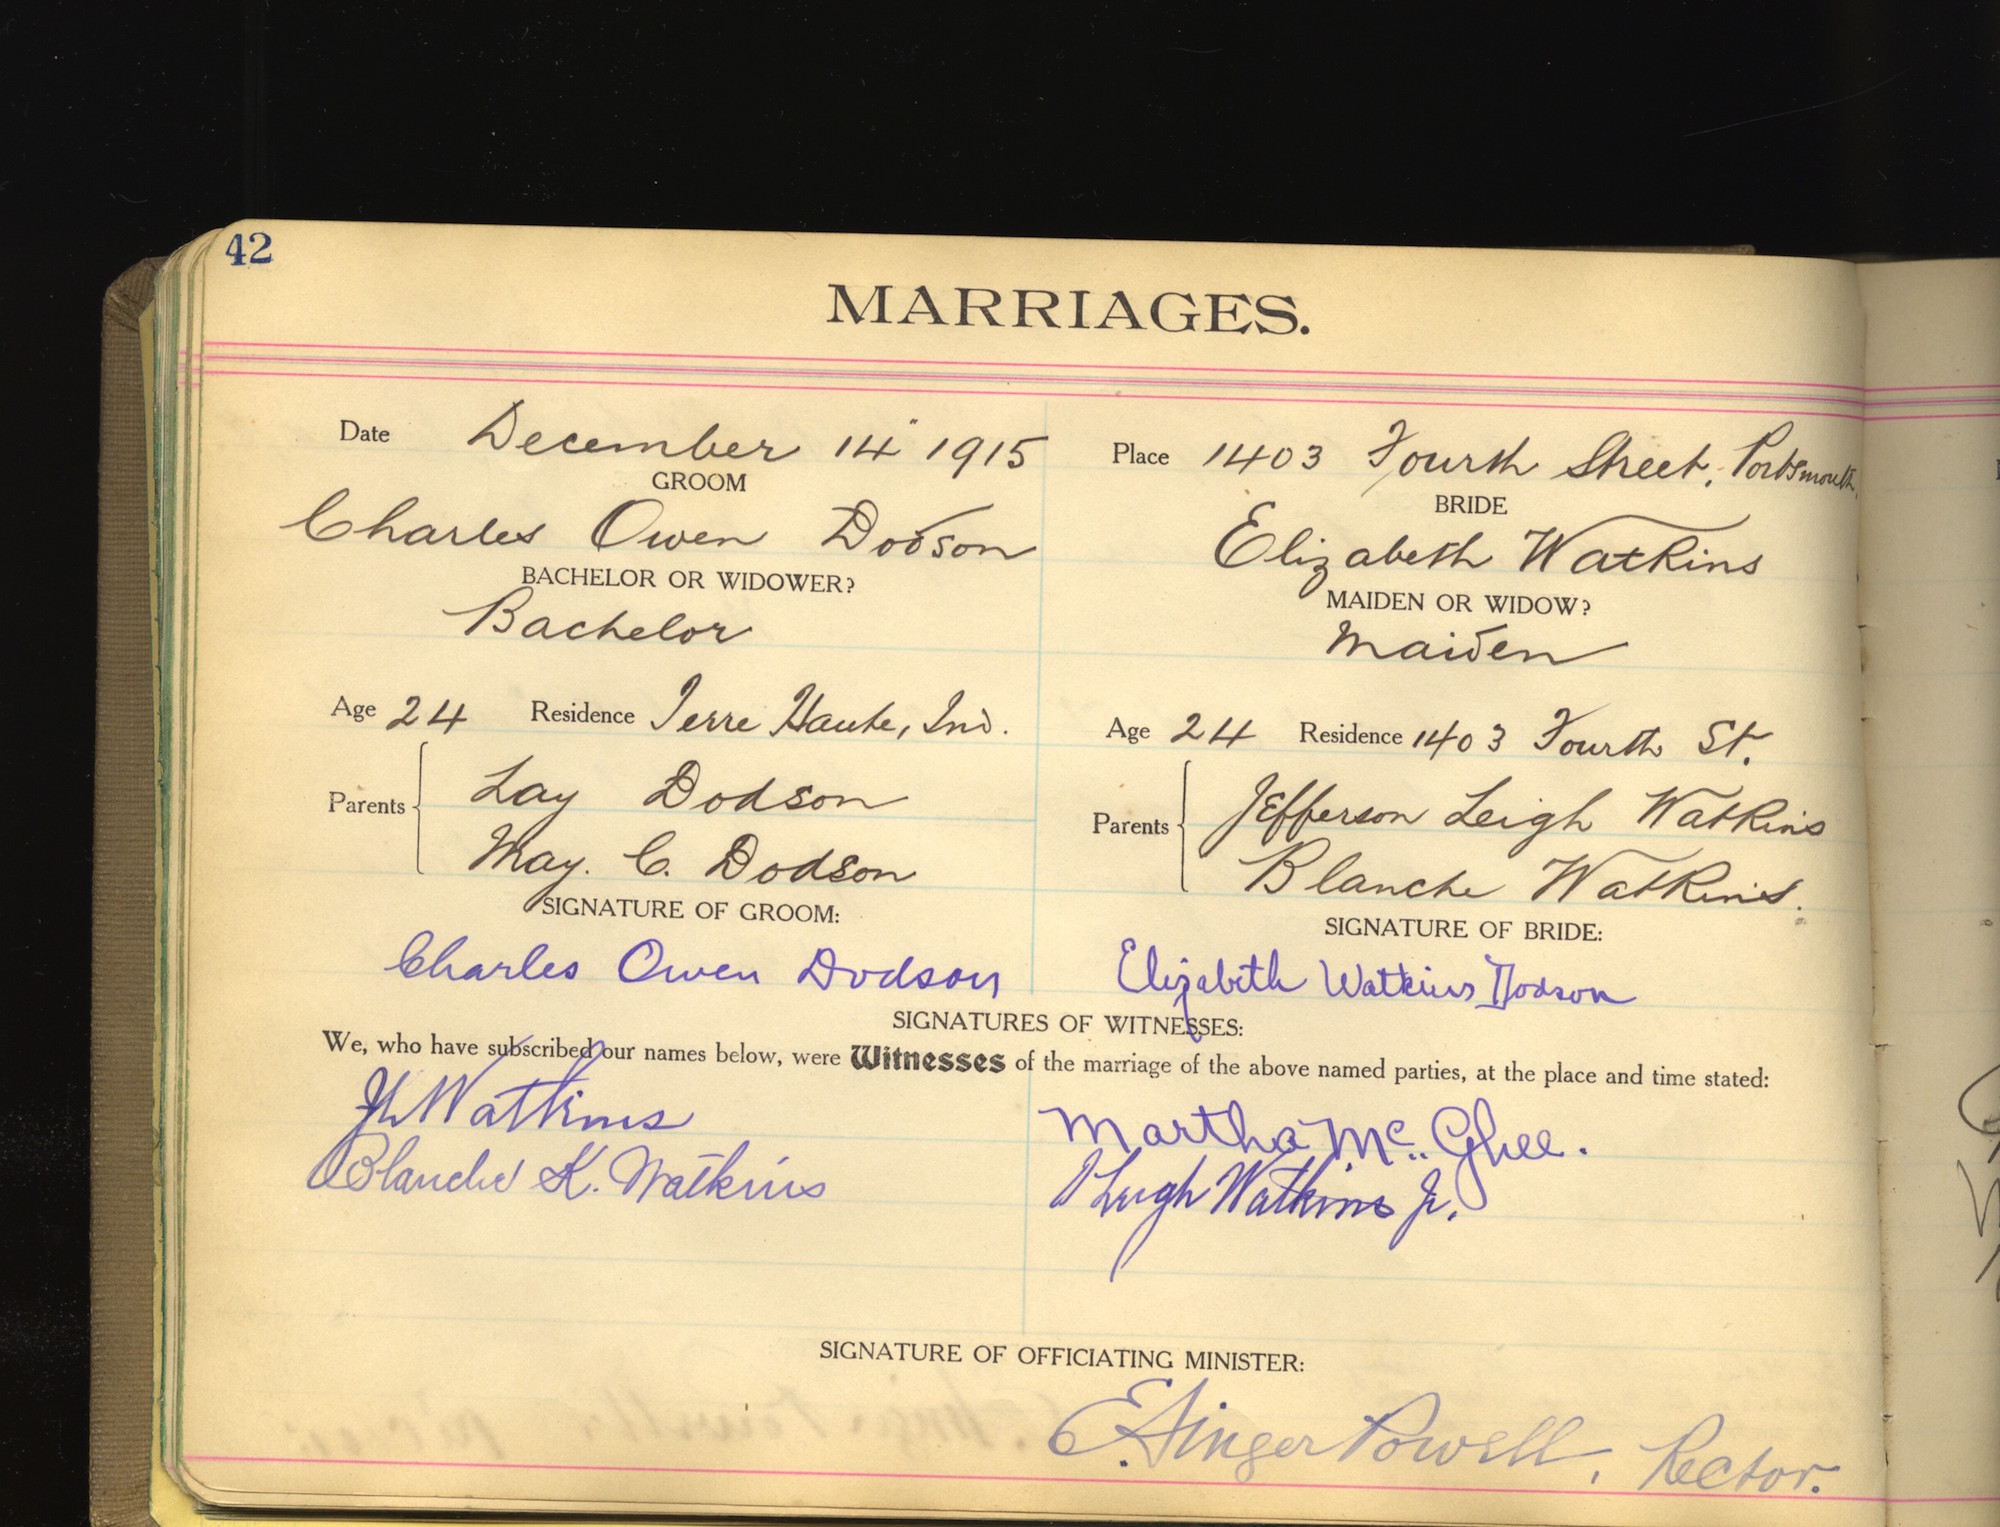 42
MARRIAGES.
Date December 14" 1915
GROOM
Charles Owen Dodson
BACHELOR OR WIDOWER?
Bachelor
Age 24 Residence Terre Haute, Ind.
Parents Lay Dodson
May. C. Dodson
SIGNATURE OF GROOM:
Charles Owen Dodson
Place 1403 Fourth Street, Portsmouth.
BRIDE
Elizabeth Watkins
MAIDEN OR WIDOW?
Maiden
Age 24 Residence 1403 Fourth St.
Parents Jefferson Leigh Watkins
Blanche Watkins.
SIGNATURE OF BRIDE:
Elizabeth Watkins Dodson
SIGNATURES OF WITNESSES:
We, who have subscribed our names below, were Witnesses of the marriage of the above named parties, at the place and time stated:
JL Watkins
Blanche K. Watkins
Martha Mc. Ghee.
J Leigh Watkins Jr.
SIGNATURE OF OFFICIATING MINISTER:
E. Singer Powell, Rector.